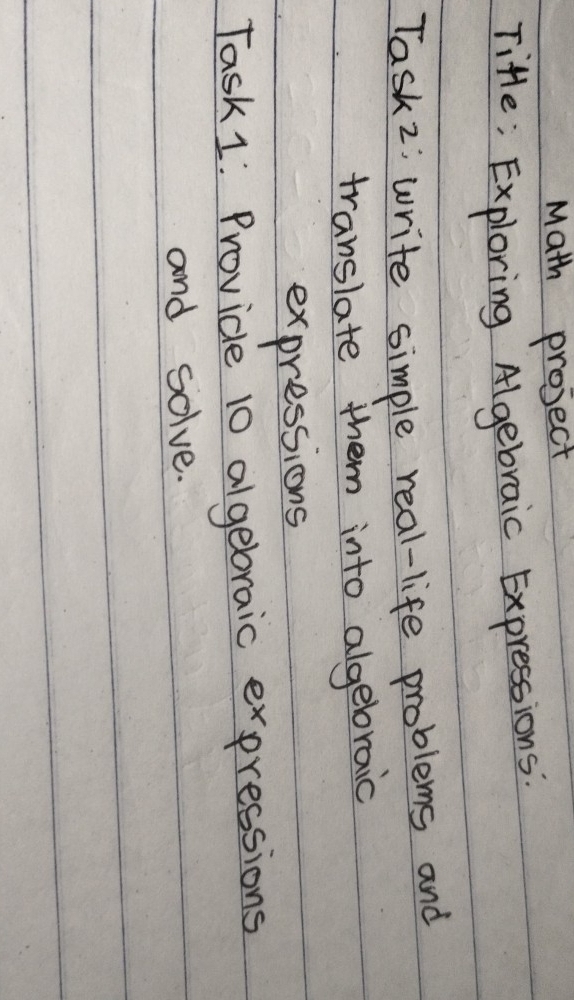 Math project
Title: Exploring Algebraic Expressions:
Task 2: write simple real-life problems and
translate them into algebraic
expressions
Task 1: Provide 10 algebraic expressions
and solve.